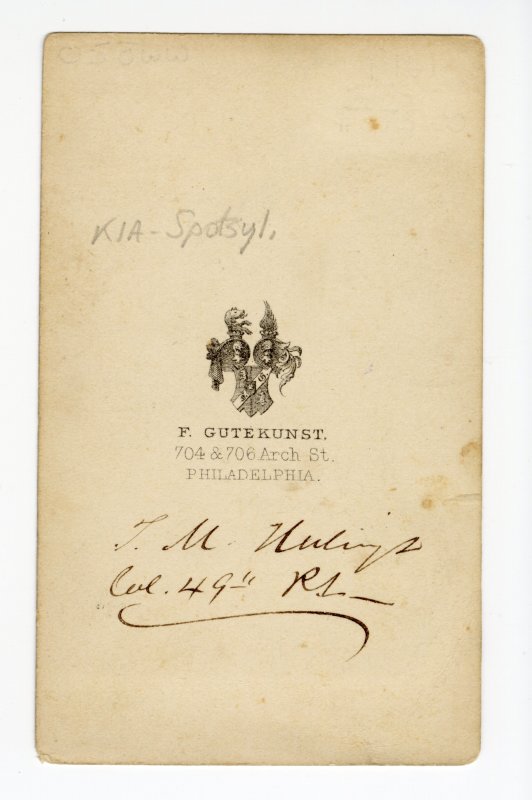 KIA - Spotsyl.
F. GUTEKUNST.
704 & 706 Arch St.
PHILADELPHIA.
T. M. Hulings
Col. 49"